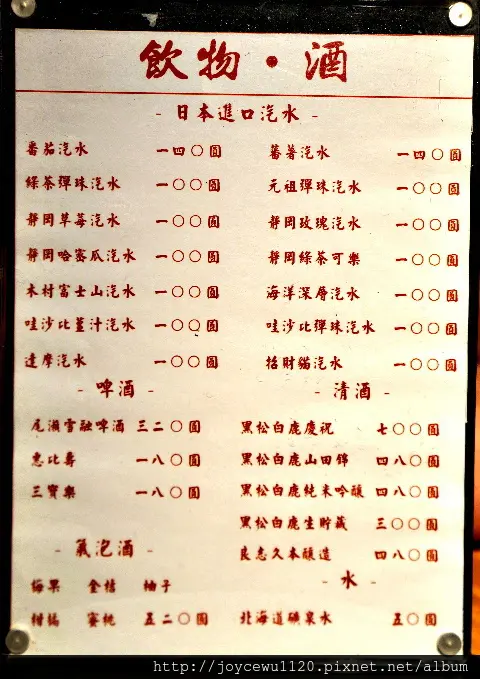 飲物・酒
- 日本進口汽水 -
番茄汽水 一四〇圓 蕃薯汽水 一四〇圓
綠茶彈珠汽水 一〇〇圓 元祖彈珠汽水 一〇〇圓
靜岡草莓汽水 一〇〇圓 靜岡玫瑰汽水 一〇〇圓
靜岡哈密瓜汽水 一〇〇圓 靜岡綠茶可樂 一〇〇圓
木村富士山汽水 一〇〇圓 海洋深層汽水 一〇〇圓
哇沙比薑汁汽水 一〇〇圓 哇沙比彈珠汽水 一〇〇圓
達摩汽水 一〇〇圓 招財貓汽水 一〇〇圓
- 啤酒 -
尾瀨雪融啤酒 三二〇圓
惠比壽 一八〇圓
三寶樂 一八〇圓
- 清酒 -
黑松白鹿慶祝 七〇〇圓
黑松白鹿山田錦 四八〇圓
黑松白鹿純米吟釀 四八〇圓
黑松白鹿生貯藏 三〇〇圓
良志久本釀造 四八〇圓
- 氣泡酒 -
梅果 金桔 柚子
柑橘 蜜桃 五二〇圓
- 水 -
北海道礦泉水 五〇圓
http://joycewu1120.pixnet.net/album